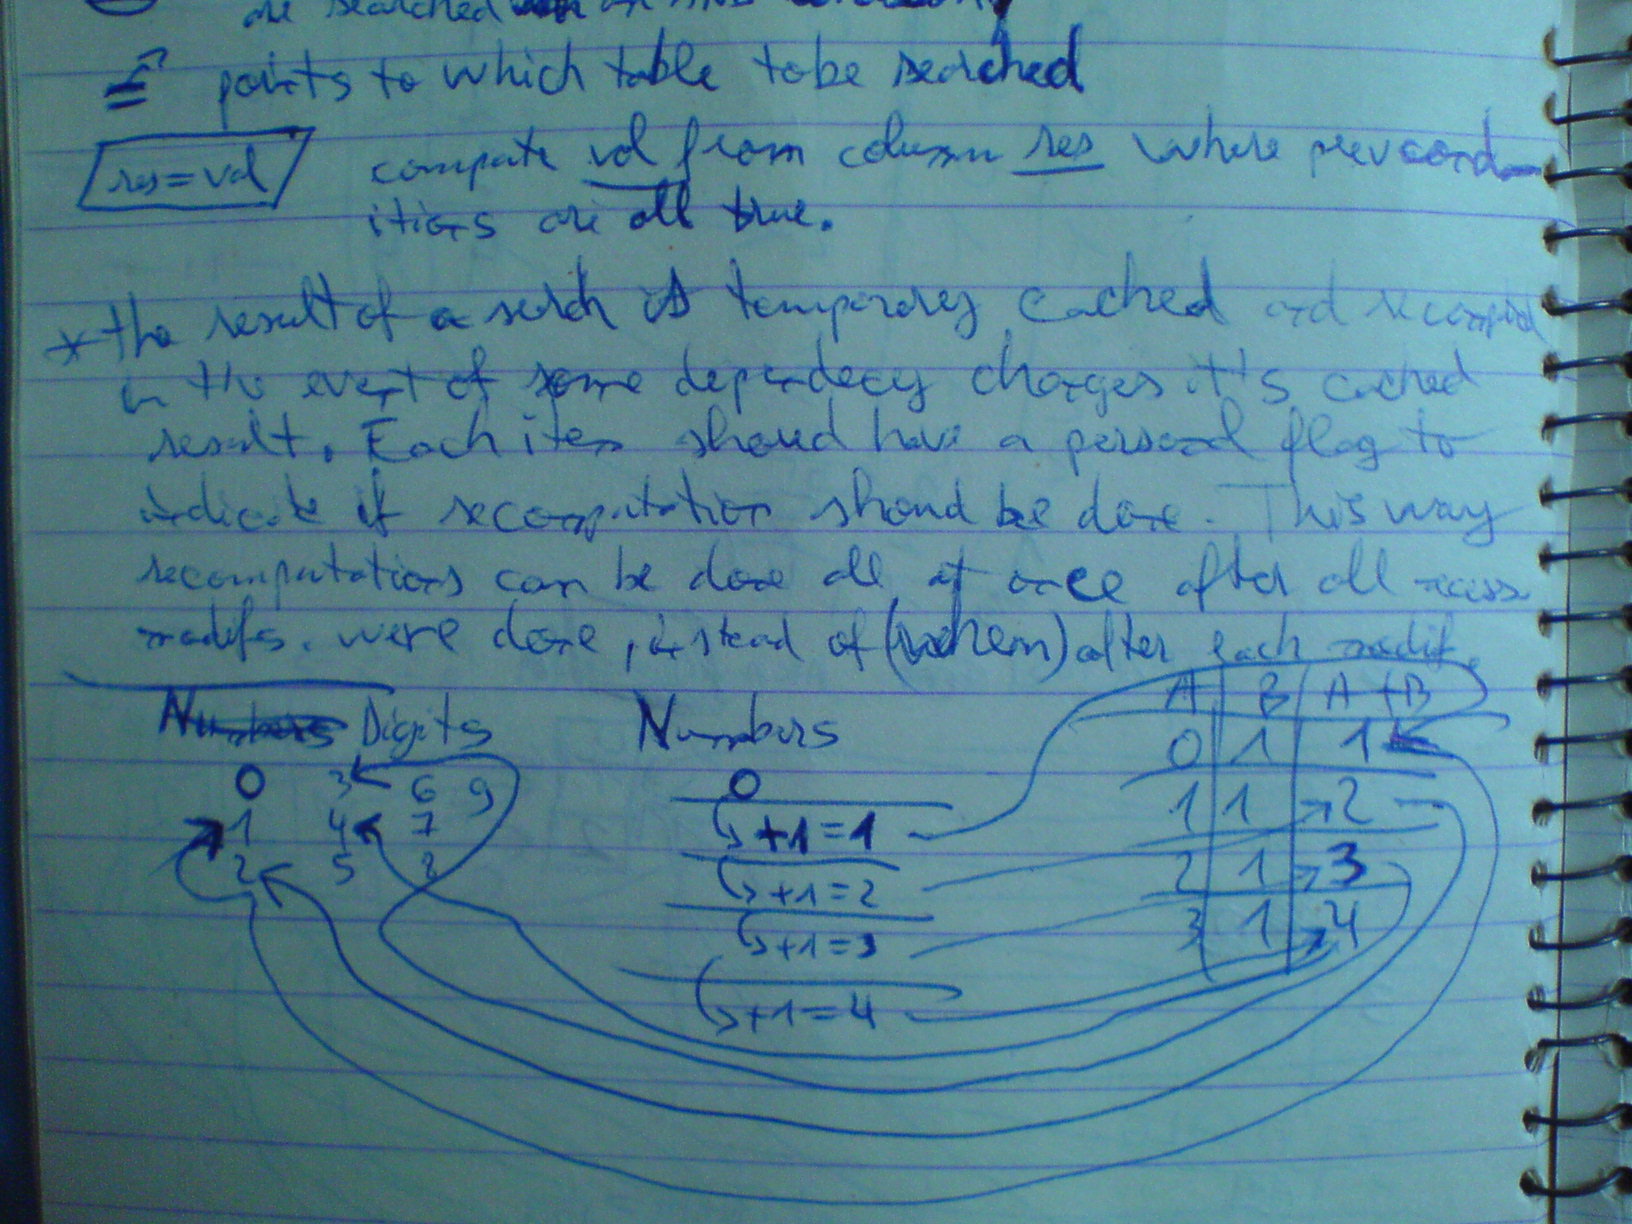 are searched
points to which table to be searched
res = val compute val from column res where prev cond-
itions are all true.
* the result of a serch is temporarey cached and recomputed
in the event of some dependecy changes it's cached
result. Each item should have a personal flag to
indicate if recomputation should be done. This way
recomputations can be done all at once after all
modifs. were done, instead of (when) after each modif.
Numbers Digits Numbers A B A+B
0 3 6 9 0 0 1 1
1 4 7 +1=1 1 1 2
2 5 8 +1=2 2 1 3
+1=3 3 1 4
+1=4